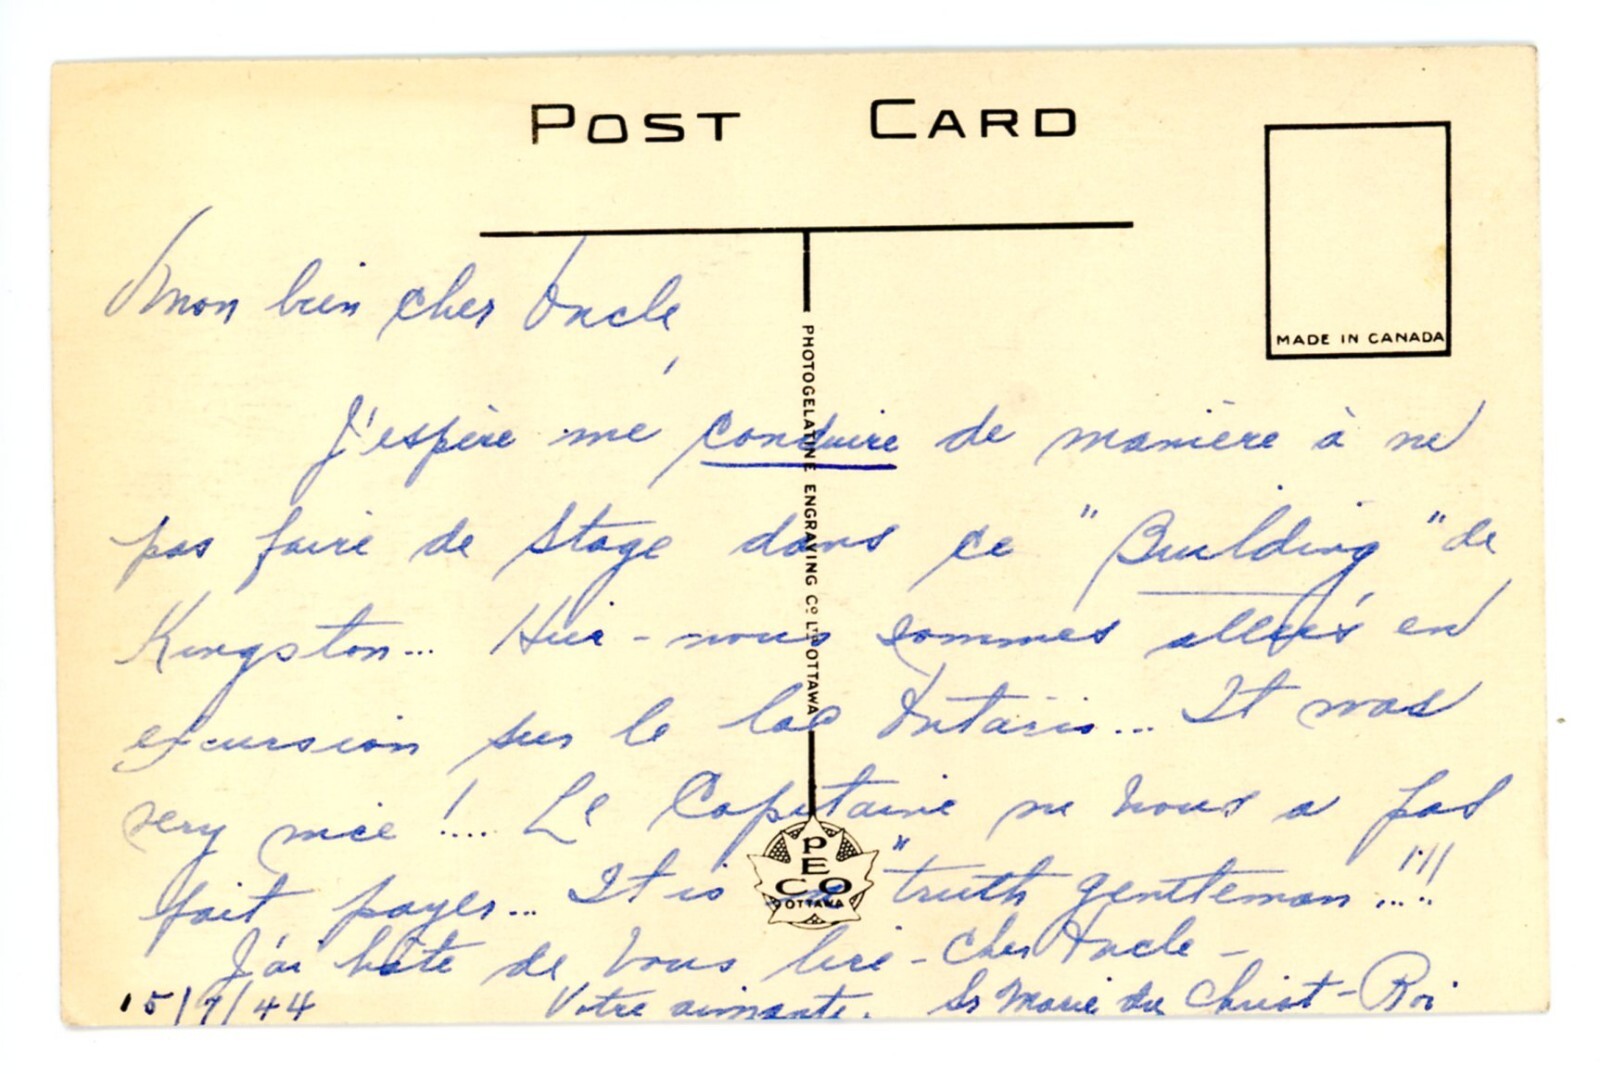 POST CARD
MADE IN CANADA
PHOTOGELATINE ENGRAVING Co LTD OTTAWA
PECO
OTTAWA
Mon bien cher Oncle,
J'espère me conduire de manière à ne
pas faire de stage dans ce "Building" de
Kingston... Hier - nous sommes allées en
excursion sur le lac Ontario... It was
very nice !.... Le Capitaine ne nous a pas
fait payer... It is "truth gentleman!...!!
J'ai hâte de vous lire - cher Oncle -
15/7/44 Votre aimante. Sr Marie du Christ-Roi